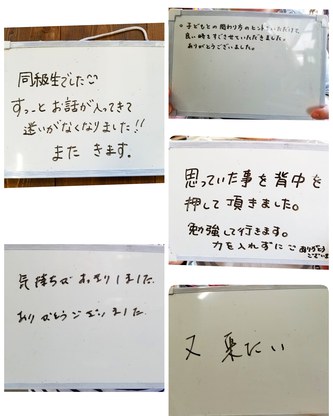 同級生でした
すーっとお話が入ってきて
迷いがなくなりました!!
また きます。
気持ちがすっきりしました。
ありがとうございました。
。子どもとの関わり方のヒントをいただけて
良い時をすごさせていただきました。
ありがとうございました。
思っていた事を背中を
押して頂きました。
勉強して行きます。
力を入れずに
ありがとう
ございます
又 来たい